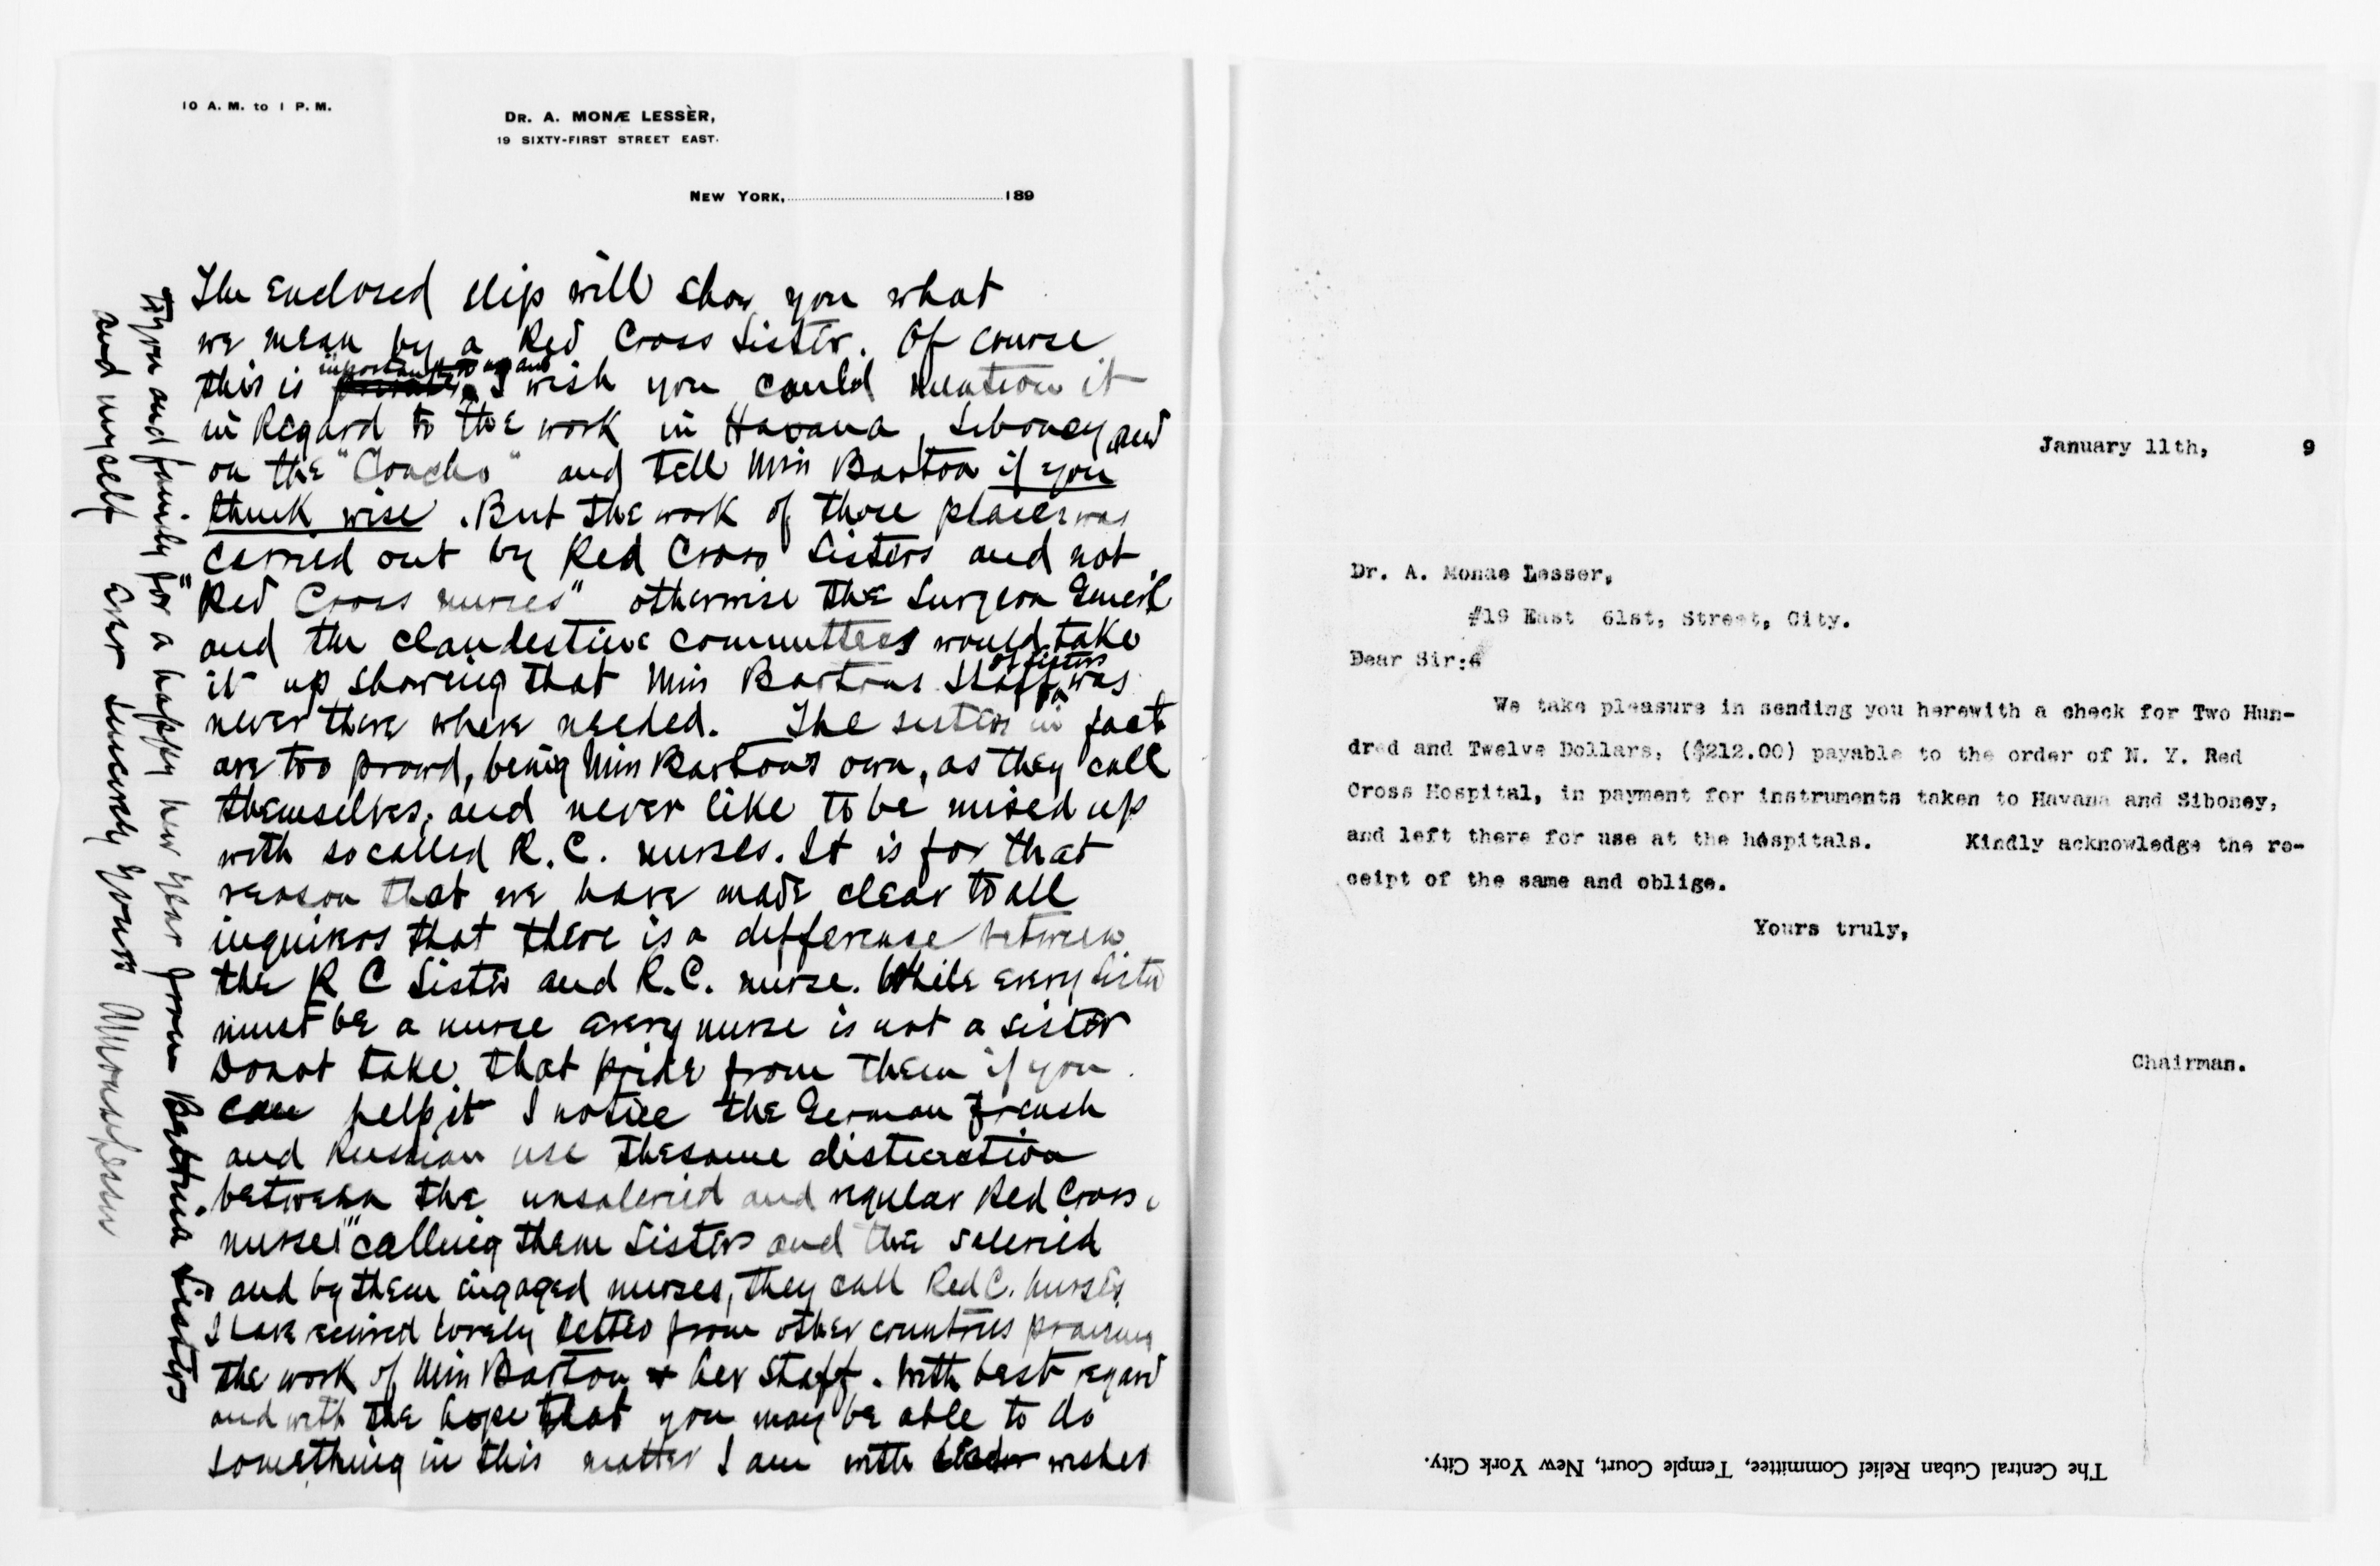 10 A. M. to 1 P. M.
DR. A. MONÆ LESSÈR,
19 SIXTY-FIRST STREET EAST.
NEW YORK, 189
The Enclosed slip will show you what
we mean by a Red Cross Sister. Of course
important to us and
this is I wish you could mention it
in Regard to the work in Havana, Siboney and
on the "Concho" and tell Miss Barton if you
think wise. But the work of those places was
carried out by Red Cross Sisters and not
"Red Cross nurses" otherwise the Surgeon Generl
and the clandestine committees would take
of sisters
it up showing that Miss Bartons Staff was
never there where needed. The sisters in fact
are too proud, being Miss Bartons own, as they call
themselves, and never like to be mixed up
with so called R. C. nurses. It is for that
reason that we have made clear to all
inquirers that there is a difference between
the R C Sister and R. C. nurse. While every Sister
must be a nurse every nurse is not a sister
Do not take that pride from them if you
can help it I notice the German French
and Russian use the same distinction
between the unsaleried and regular Red Cross
nurses "calling them Sisters and the saleried
and by them engaged nurses, they call Red C. nurses.
I have recived lovely letters from other countries praising
the work of Miss Barton & her Staff. With best regard
and with the hope that you may be able to do
something in this matter I am with wishes
to you and family for a happy new year from Bettina Sisters
and myself Ever Sincerely yours AMonæLesser
January 11th, 9
Dr. A. Monae Lesser,
#19 East 61st, Street, City.
Dear Sir:-
We take pleasure in sending you herewith a check for Two Hun-
dred and Twelve Dollars, ($212.00) payable to the order of N. Y. Red
Cross Hospital, in payment for instruments taken to Havana and Siboney,
and left there for use at the hospitals. Kindly acknowledge the re-
ceipt of the same and oblige.
Yours truly,
Chairman.
The Central Cuban Relief Committee, Temple Court, New York City.